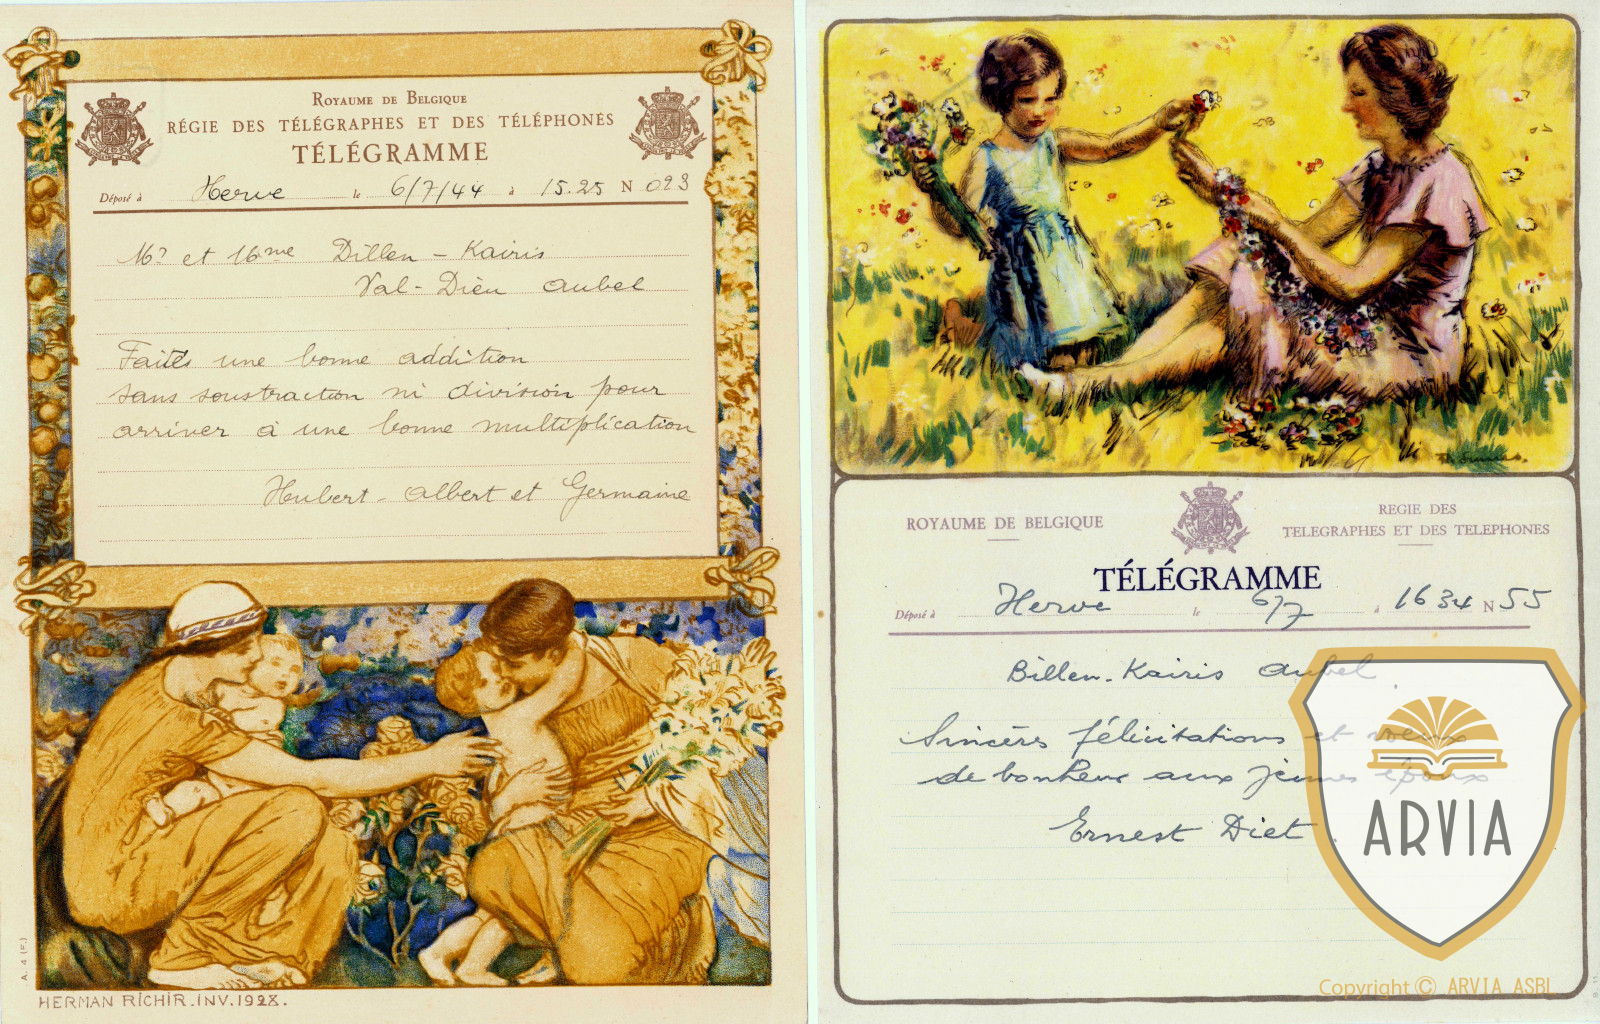 ROYAUME DE BELGIQUE
RÉGIE DES TÉLÉGRAPHES ET DES TÉLÉPHONES
TÉLÉGRAMME
Déposé à Herve le 6/7/44 à 15.25 N 093
Mr et Mme Dillen - Kairis
Val-Dieu Aubel
Faites une bonne addition
sans soustraction ni division pour
arriver à une bonne multiplication
Hubert - Albert et Germaine
A. 4 (F.)
HERMAN RICHIR.INV.1928.
ROYAUME DE BELGIQUE
REGIE DES
TELEGRAPHES ET DES TELEPHONES
TÉLÉGRAMME
Déposé à Herve le 6/7 à 16 34 N 55
Billen-Kairis Aubel
Sincères félicitations et vœux
de bonheur aux jeunes époux
Ernest Diet.
ARVIA
Copyright © ARVIA ASBL